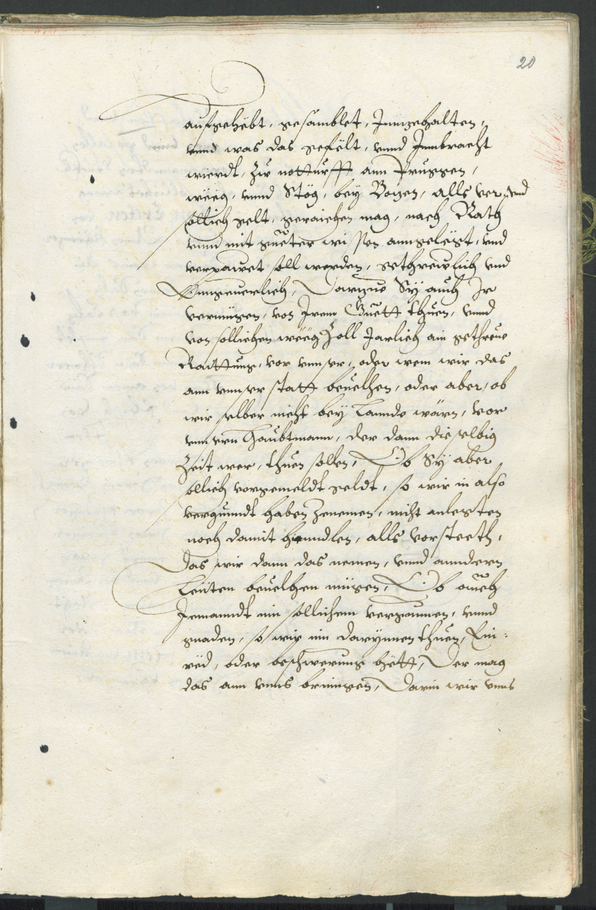 20
aufgehebt, gesamblet, Inngehalten,
vnnd was das gefelt, vnnd Innbracht
wierdt, zu notturfft ann Pruggen,
weeg, vnnd Stög, bey Bozen, alls ver: vnd
sollich gelt, geraichen mag, nach Rath
vnnd mit gueter wissen anngelegt, vnd
verpawet soll werden, gethrewlich vnd
Vngeuerlich, Darzue Sy auch Ir
vermügen, von Irem Guett thuen, vnnd
von sollichen weeg Zoll Jarlich ain gethreue
Raittung, vor vnnser, oder wem wir das
ann vnnser statt beuelhen, oder aber, ob
wir selber nicht bey Lannde wären, vor
vnnsern Haubtmann, der dann die selbig
Zeit wer, thuen sollen, Ob Sy aber
sollich vorgemeldt geldt, so wir in also
vergunndt haben Zenemen, nicht anlegten
noch damit hanndlen, alls vorsteeth,
Das wir dann das nemen, vnnd anndern
Leuten beuelhen mügen, Ob auch
Jemanndt inn sollichem vergonnen, vnnd
gnaden, so wir inn darynnen thuen, Ein=
red, oder beschwerung hett, Der mag
das ann vnns bringen, Darin wir vnns